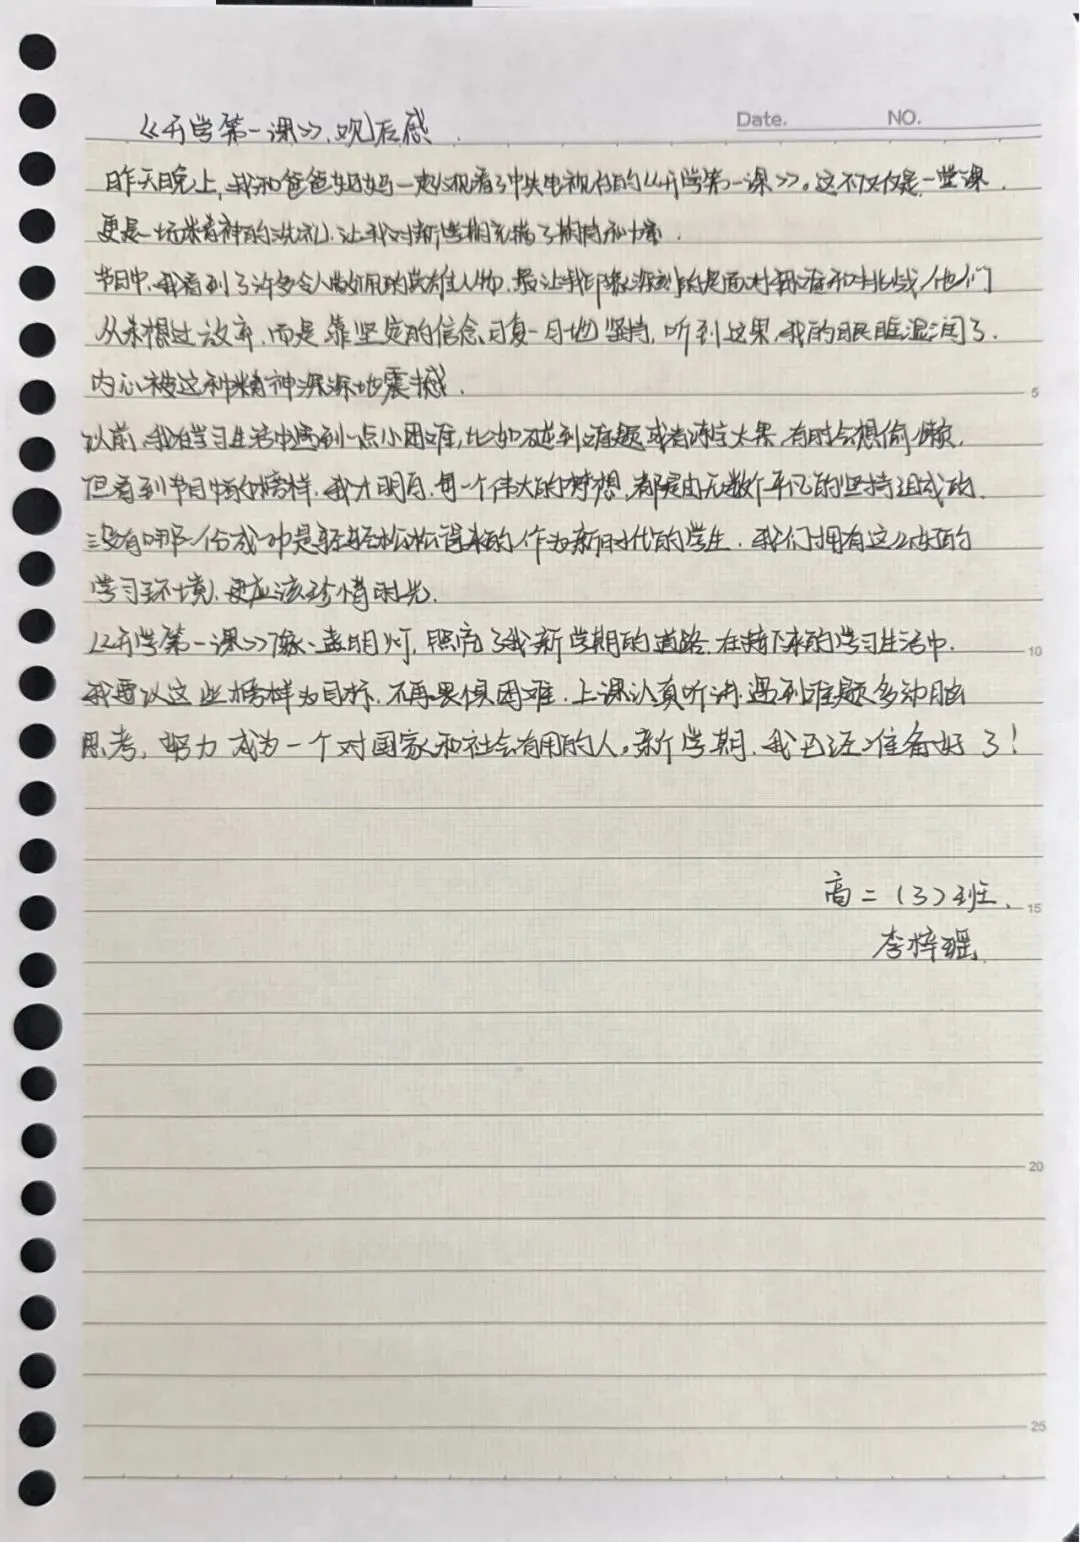 《开学第一课》观后感
Date.
NO.
昨天晚上,我和爸爸妈妈一起观看了中央电视台的《开学第一课》。这不仅仅是一堂课,
更是一场精神的洗礼,让我对新学期充满了期待和憧憬.
节目中,我看到了许多令人敬佩的英雄人物,最让我印象深刻的是面对艰难和挑战,他们
从未想过放弃,而是靠坚定的信念日复一日地坚持,听到这里,我的眼眶湿润了.
内心被这种精神深深地震撼.
以前,我在学习生活中遇到一点小困难,比如碰到难题或者课文太累,有时会想偷懒,
但看到节目中的榜样,我才明白,每一个伟大的梦想,都是由无数个平凡的坚持组成的,
没有哪一份成功是轻轻松松得来的,作为新时代的学生,我们拥有这么好的
学习环境,更应该珍惜时光.
《开学第一课》像一盏明灯,照亮了我新学期的道路,在接下来的学习生活中,
我要以这些榜样为目标,不再畏惧困难,上课认真听讲,遇到难题多动脑
思考,努力成为一个对国家和社会有用的人。新学期,我已经准备好了!
高二(3)班
李梓瑶
5
10
15
20
25